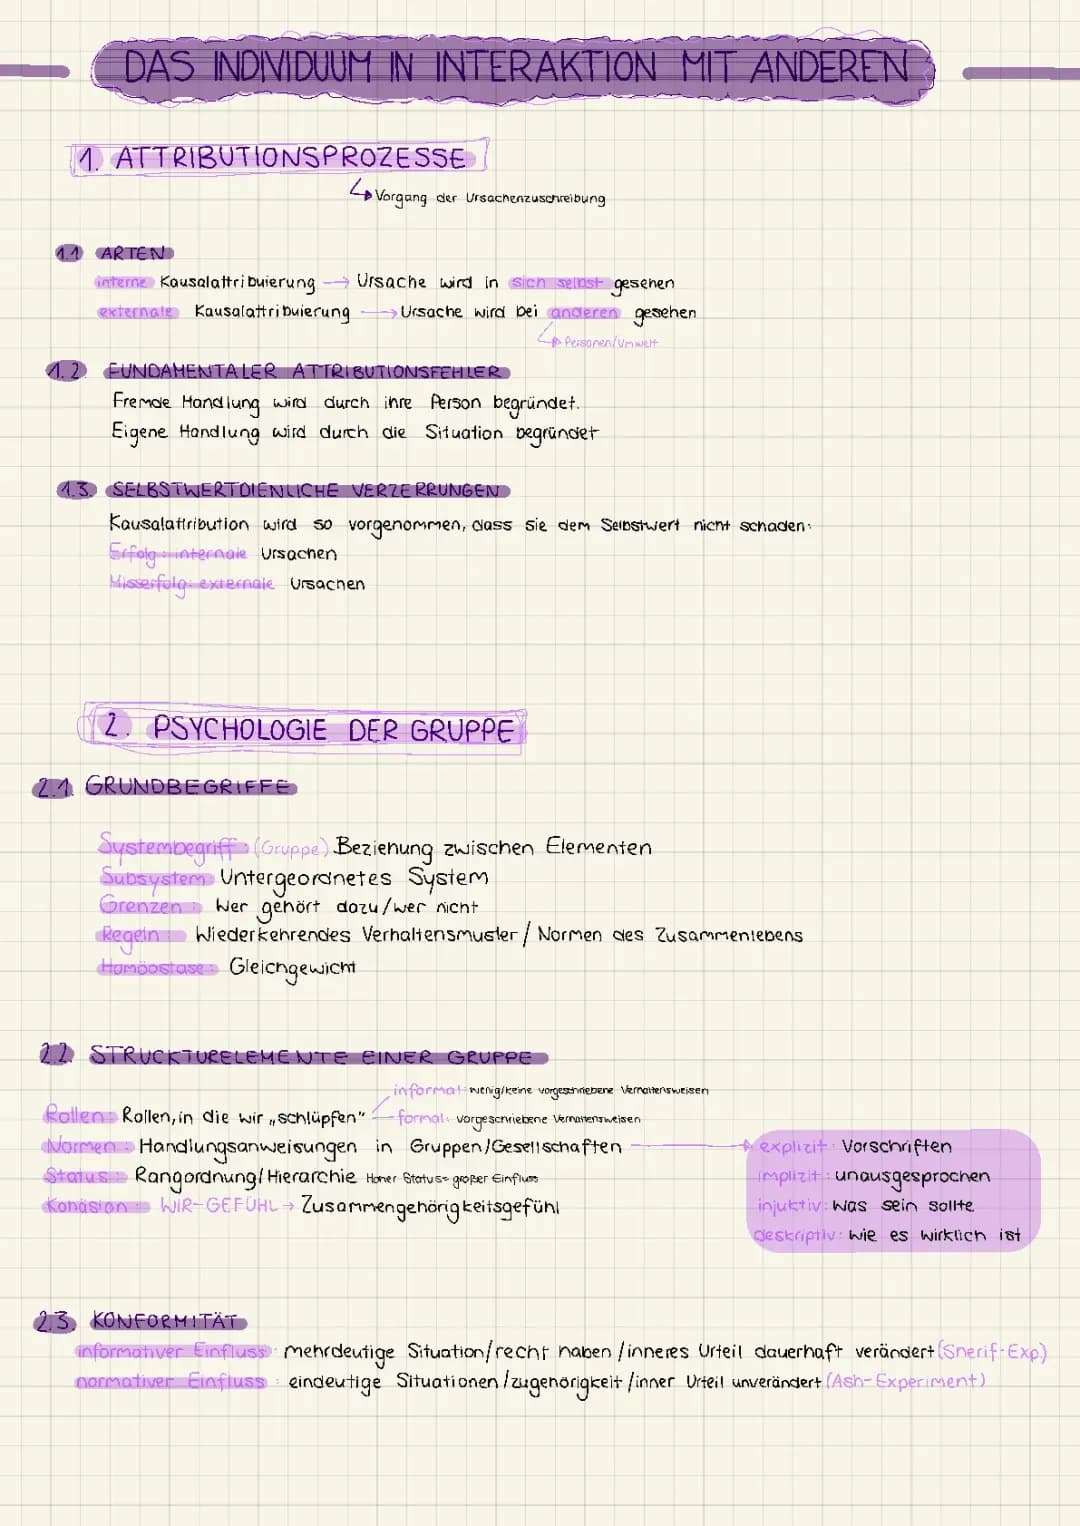 DAS INDIVIDUUM IN INTERAKTION MIT ANDEREN
1. ATTRIBUTIONSPROZESSE
↳ Vorgang der Ursachenzuschreibung
1.1 ARTEN
interne Kausalattribuierung → Ursache wird in sich selbst gesehen
externale Kausalattribuierung → Ursache wird bei anderen gesehen
↳ Personen/Umwelt
1.2. FUNDAMENTALER ATTRIBUTIONSFEHLER
Fremde Handlung wird durch ihre Person begründet.
Eigene Handlung wird durch die Situation begründet
1.3. SELBSTWERTDIENLICHE VERZERRUNGEN
Kausalattribution wird so vorgenommen, dass sie dem Selbstwert nicht schaden:
Erfolg: internale Ursachen
Misserfolg: externale Ursachen
2. PSYCHOLOGIE DER GRUPPE
2.1. GRUNDBEGRIFFE
Systembegriff: (Gruppe) Beziehung zwischen Elementen
Subsystem Untergeordnetes System
Grenzen: Wer gehört dazu/wer nicht
Regeln: Wiederkehrendes Verhaltensmuster/ Normen des Zusammenlebens
Homöostase: Gleichgewicht
2.2. STRUCKTURELEMENTE EINER GRUPPE
informal: wenig/keine vorgeschriebene Verhaltensweisen
Rollen: Rollen, in die wir „schlüpfen" formal: vorgeschriebene Verhaltensweisen
Normen: Handlungsanweisungen in Gruppen/Gesellschaften → explizit: Vorschriften
Status: Rangordnung/Hierarchie Hoher Status= großer Einfluss implizit: unausgesprochen
Kohäsion: WIR-GEFÜHL → Zusammengehörigkeitsgefühl injuktiv: was sein sollte
deskriptiv: wie es wirklich ist
2.3. KONFORMITÄT
informativer Einfluss: mehrdeutige Situation/recht haben/inneres Urteil dauerhaft verändert (Sherif-Exp)
normativer Einfluss: eindeutige Situationen/zugehörigkeit/inner Urteil unverändert (Ash-Experiment)